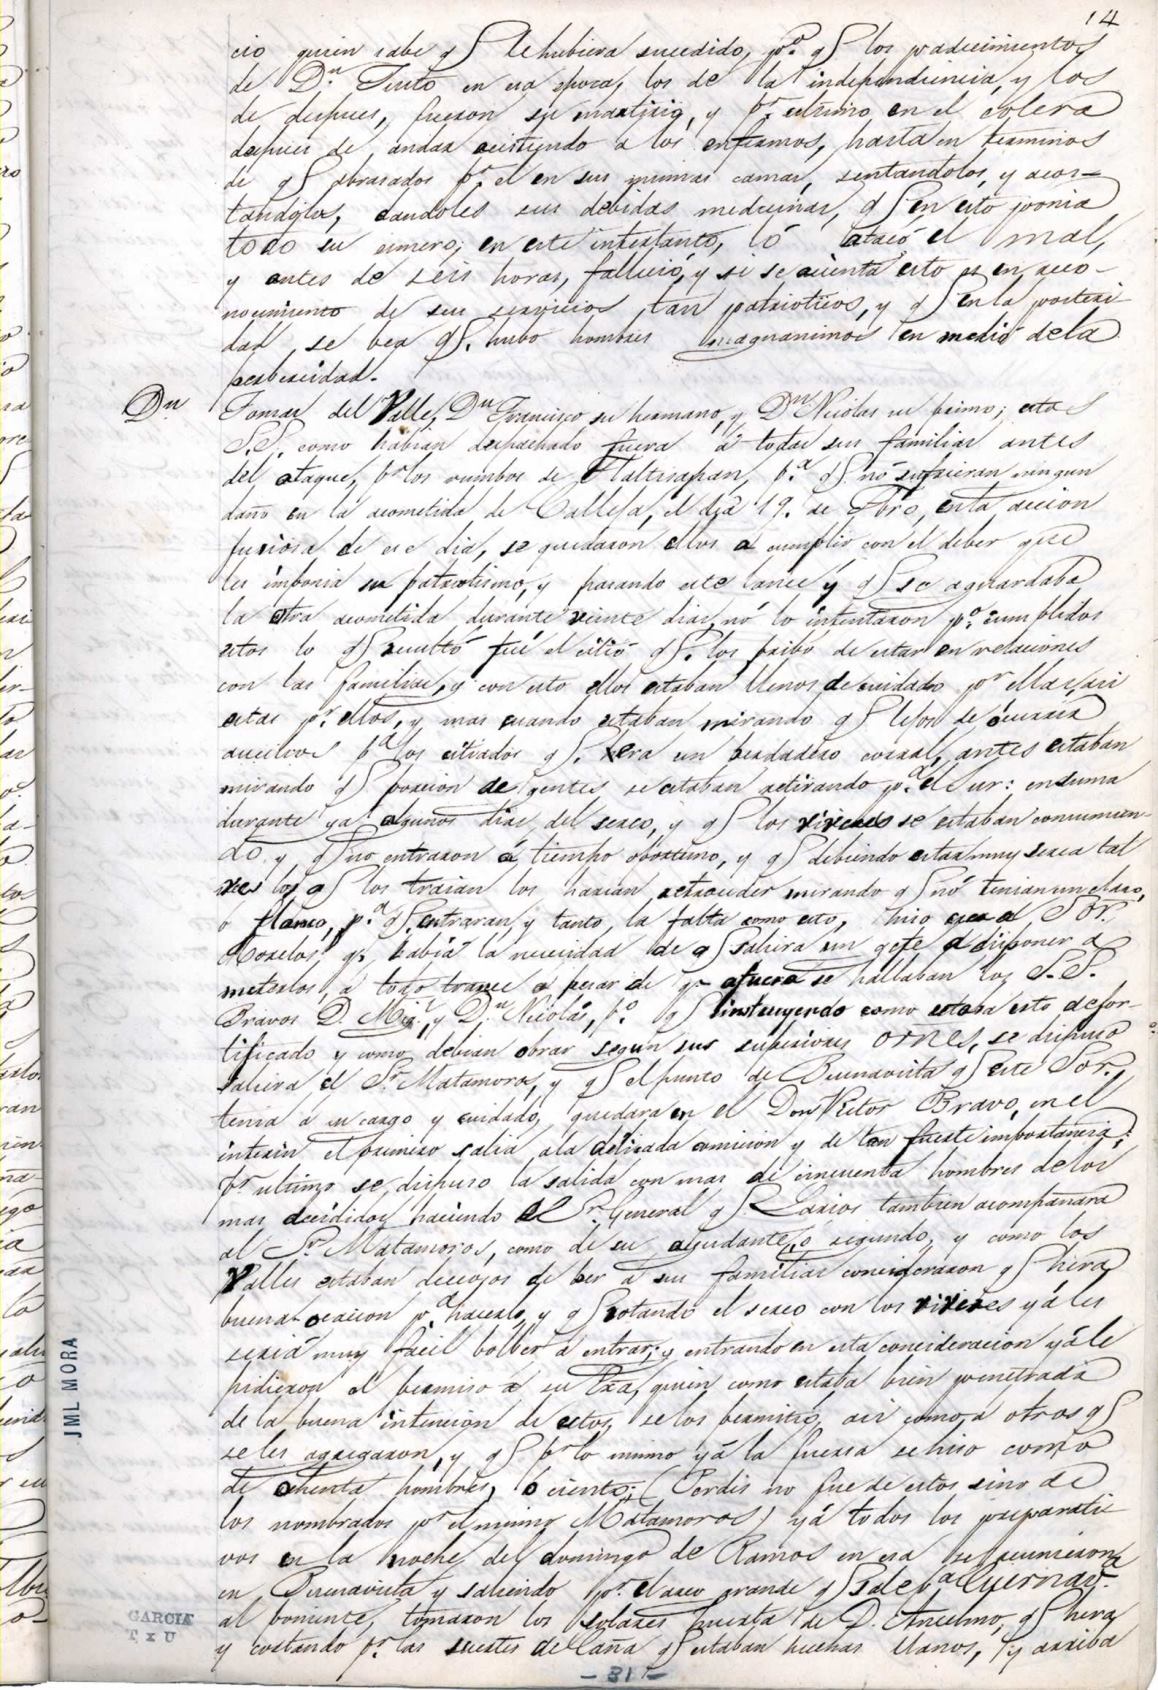 14
cio quien sabe q̃ le hubiera sucedido, p.º q̃ los padecimientos
de D.n Tinto en esa epoca, los de la independencia, y los
de despues, fueron su martirio, y p.r ultimo en el colera
despues de andar acistiendo a los enfermos, hasta en terminos
de q̃ abrasados p.r el en sus mismas camas, sentandolos, y acos-
tandolos, dandoles sus debidas medicinas, q̃ en esto ponia
todo su esmero; en este intertanto, ló atacó el mal,
y antes de seis horas, falleció, y si se cuenta esto es en reco-
nocimiento de sus servicios tan patrioticos, y q̃ en la posteri
dad se bea q̃. hubo hombres magnanimos en medio de la
perbercidad.
Dn Tomas del Valle, Dn Francisco su hermano, y Dn Nicolas su primo; estos
S.S. como habian despachado fuera á todas sus familias antes
del ataque, p.r los rumbos de Tlaltisapan, p.a q̃ nó sufrieran ningun
daño en la acometida de Calleja, el dia 19. de Fbro, esta accion
furiosa de ese dia, se quedaron ellos a cumplir con el deber que
les imponia su patriotismo, y pasando este lance y q̃ se aguardaba
la otra acometida, durante veinte dias, nó lo intentaron p.º cumplidos
estos lo q̃ resultó fué el citió q̃. los pribó de estar en relaciones
con las familias, y con esto ellos estaban llenos de cuidado por ellas, asi
estas p.r ellos, y mas cuando estaban mirando q̃ lejos de
aucilios p.a los citiados q̃. era un berdadero corral, antes estaban
mirando q̃ porcion de gentes se estaban retirando p.a el sur: en suma
durante ya algunos dias, del serco, y q̃ los viveres se estaban consumien-
do y q̃ no entraron á tiempo oportuno, y q̃ debiendo estar muy serca tal
ves los q̃ los traian los harian retroceder mirando q̃ nó tenian un claro,
o flanco, p.a q̃. entraran, y tanto, la falta como esto, hiso al Sor.
Morelos, q.e habia la necesidad de q̃ saliera un gefe a disponer a
meterlos, a todo trance a pesar de q.e afuera se hallaban los S.S.
Bravos D. Mig.l, y D.n Nicolás, p.º q̃ instruyendo como estaba esto de for-
tificado y como debian obrar segun sus superiores ornes, se dispuso
saliera el S.r Matamoros, y q̃ el punto de Buenavista q̃ este Sor.,
tenia a su cargo y cuidado, quedara en el Don Victor Bravo, en el
interin el primero salia, a la delicada comicion y de tan fuerte importancia;
p.r ultimo se dispuso la salida con mas de cincuenta hombres de los
mas decididos, haciendo el S.r General q̃. Larios tambien acompañara
al S.r Matamoros, como de su ayudante, o segundo, y como los
Valles estaban deceojos de ber a sus familias concideraron q̃ hera
buena ocacion p.a hacerlo, y q̃ rotando el serco con los viveres yá les
seria muy facil bolber a entrar; y entrando en esta concideracion yá le
pidieron el bermiso a su Exa, quien como estaba bien penetrado
de la buena intencion de estos, se los bermitió, asi como a otros q̃
se les agregaron, y q̃ p.r lo mismo yá la fuersa se hiso como
de ochenta hombres, o ciento; (Perdis no fue de estos sino de
los nombrados p.r el mismo Matamoros) yá todos los preparati
vos en la noche del domingo de Ramos en esa se reunieron
en Buenavista y saliendo p.r el arco grande q̃ sale p.a Cuernav.a
al poniente, tomaron los solares huerta de D. Anselmo, q̃ hera
y costando p.r las suertes de Caña q̃ estaban hechas llanos, y arriba
JML MORA
GARCIA
T x U
- 31 -